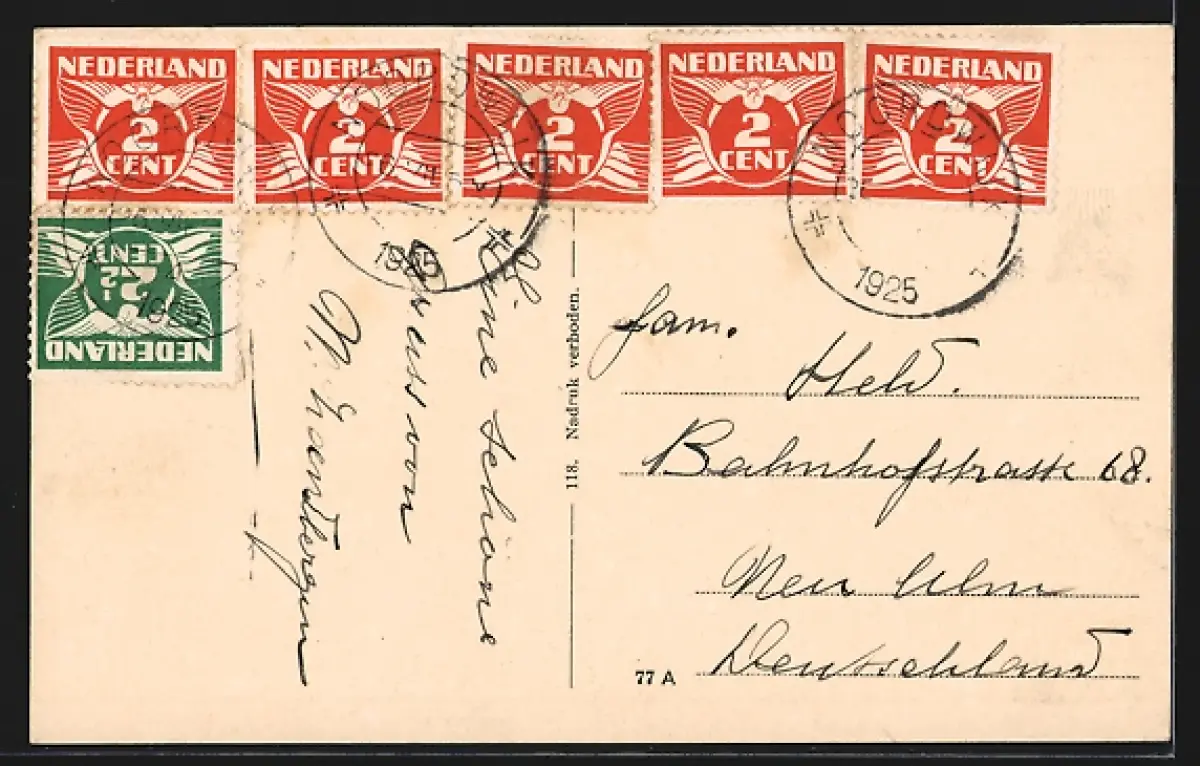 NEDERLAND
2
CENT
NEDERLAND
2
CENT
NEDERLAND
2
CENT
NEDERLAND
2
CENT
NEDERLAND
2
CENT
NEDERLAND
2½
CENT
1925
1925
1925
schöne
von
118. Nadruk verboden.
fam.
Held.
Bahnhofstrasse 68.
Neu Ulm
Deutschland
77 A